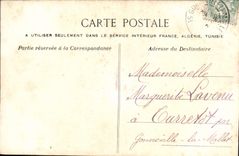 CARTE POSTALE
A UTILISER SEULEMENT DANS LE SERVICE INTÉRIEUR FRANCE, ALGÉRIE, TUNISIE
Partie réservée à la Correspondance
Adresse du Destinataire
Mademoiselle
Marguerite Lavenu
à Ourretot par
Gonneville-la-Mallet